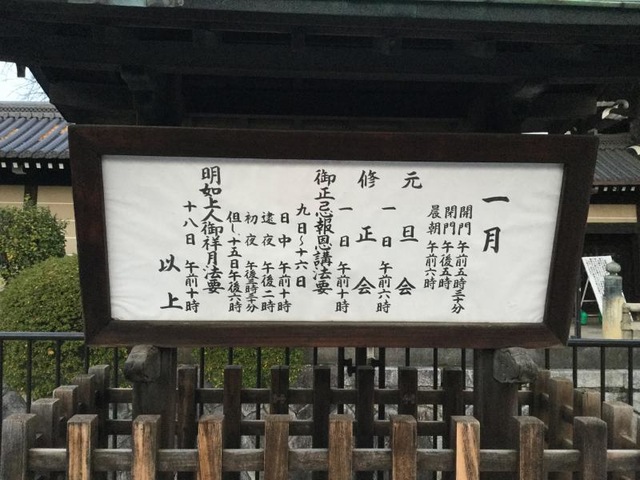 一月
開門 午前五時三十分
閉門 午後五時
晨朝 午前六時
元旦会
一日 午前六時
修正会
一日 午前十時
御正忌報恩講法要
九日〜十六日
日中 午前十時
逮夜 午後二時
初夜 午後五時三十分
但し、十五日午後六時
明如上人御祥月法要
十八日 午前十時
以上